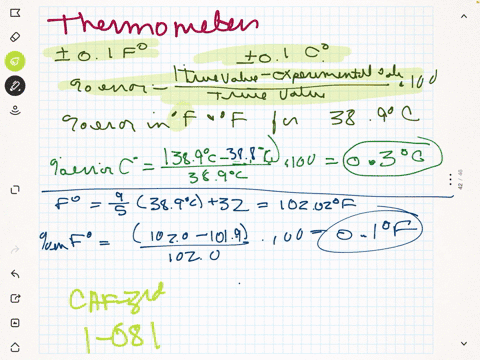 Thermometer
± 0.1 F° ± 0.1 C°
% error = |True Value - experimental / True Value · 100
% error in °F °F for 38.9°C
% error C° = |38.9°C - 38.8°C| / 38.9°C · 100 = 0.3°C
F° = 9/5 (38.9°C) + 32 = 102.02°F
F° = (102.0 - 101.9) / 102.0 · 100 = 0.1°F
1-081